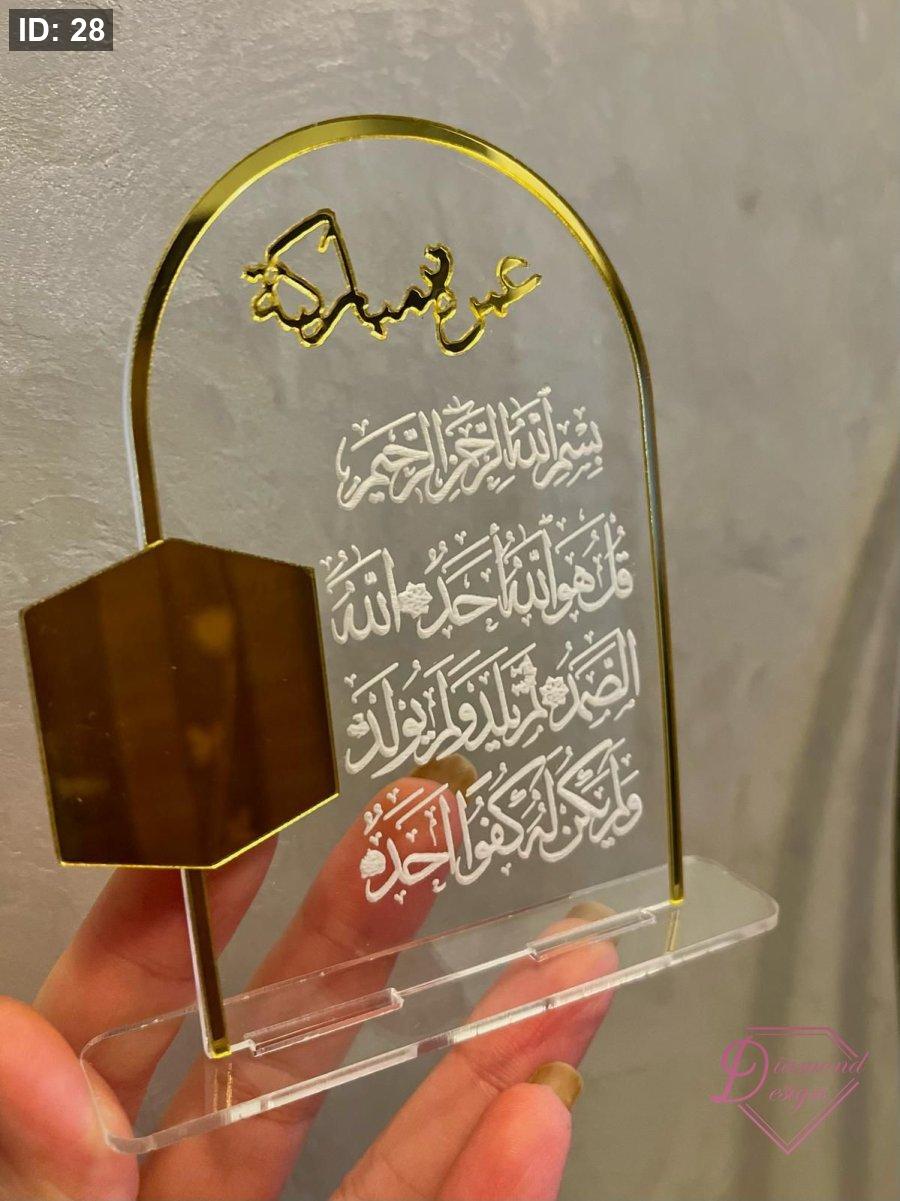 ID: 28
عمرة مباركة
بِسْمِ اللَّهِ الرَّحْمَٰنِ الرَّحِيمِ
قُلْ هُوَ اللَّهُ أَحَدٌ ۝ اللَّهُ
الصَّمَدُ ۝ لَمْ يَلِدْ وَلَمْ يُولَدْ
وَلَمْ يَكُنْ لَهُ كُفُوًا أَحَدٌ ۝
Diamond
Design